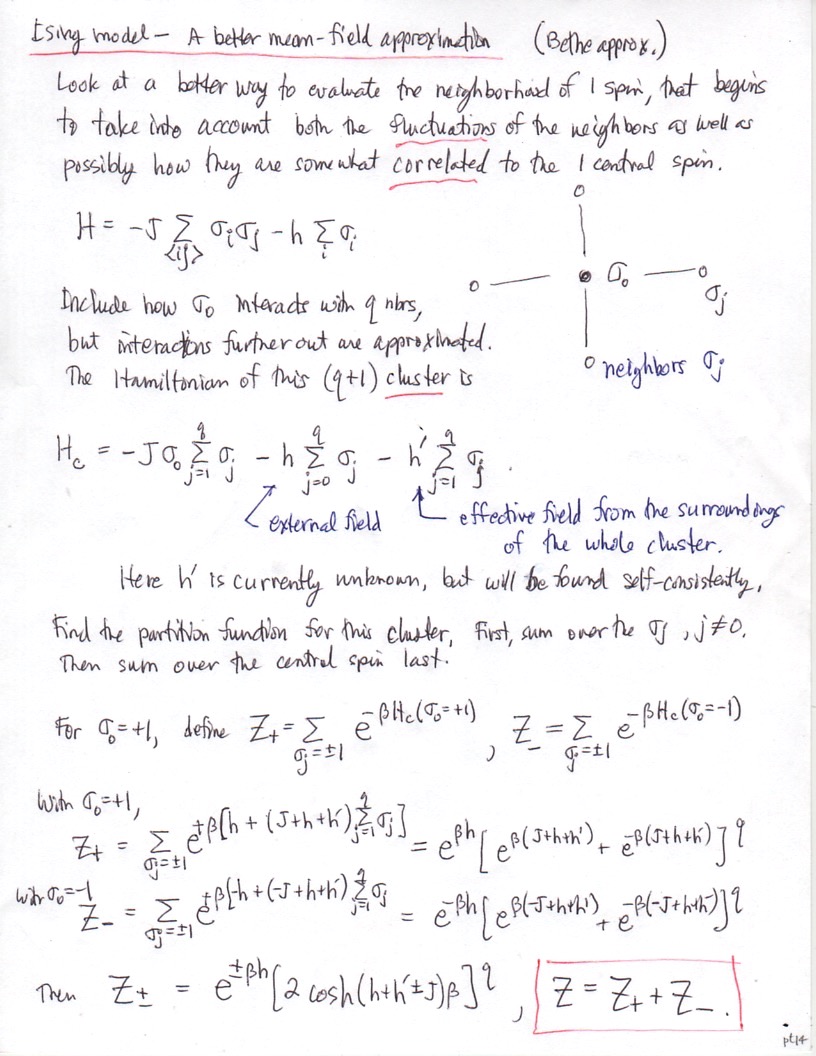 Ising model - A better mean-field approximation (Bethe approx.)
Look at a better way to evaluate the neighborhood of 1 spin, that begins
to take into account both the fluctuations of the neighbors as well as
possibly how they are somewhat correlated to the 1 central spin.
H = -J Σ_{<ij>} σ_i σ_j - h Σ_i σ_i
σ_0
σ_j
Include how σ_0 interacts with q nbrs,
but interactions further out are approximated.
neighbors σ_j
The Hamiltonian of this (q+1) cluster is
H_c = -J σ_0 Σ_{j=1}^{q} σ_j - h Σ_{j=0}^{q} σ_j - h' Σ_{j=1}^{q} σ_j .
external field
effective field from the surroundings
of the whole cluster.
Here h' is currently unknown, but will be found self-consistently.
Find the partition function for this cluster, First, sum over the σ_j , j≠0.
Then sum over the central spin last.
For σ_0=+1, define Z_+ = Σ_{σ_j=±1} e^{-βH_c(σ_0=+1)} , Z_- = Σ_{σ_j=±1} e^{-βH_c(σ_0=-1)}
With σ_0=+1,
Z_+ = Σ_{σ_j=±1} e^{+β[h + (J+h+h') Σ_{j=1}^{q} σ_j]} = e^{βh} [e^{β(J+h+h')} + e^{-β(J+h+h')}]^q
with σ_0=-1
Z_- = Σ_{σ_j=±1} e^{+β[-h + (-J+h+h') Σ_{j=1}^{q} σ_j} = e^{-βh} [e^{β(-J+h+h')} + e^{-β(-J+h+h')}]^q
Then Z_± = e^{±βh} [2 cosh(h+h'±J)β]^q , Z = Z_+ + Z_- .
pt14